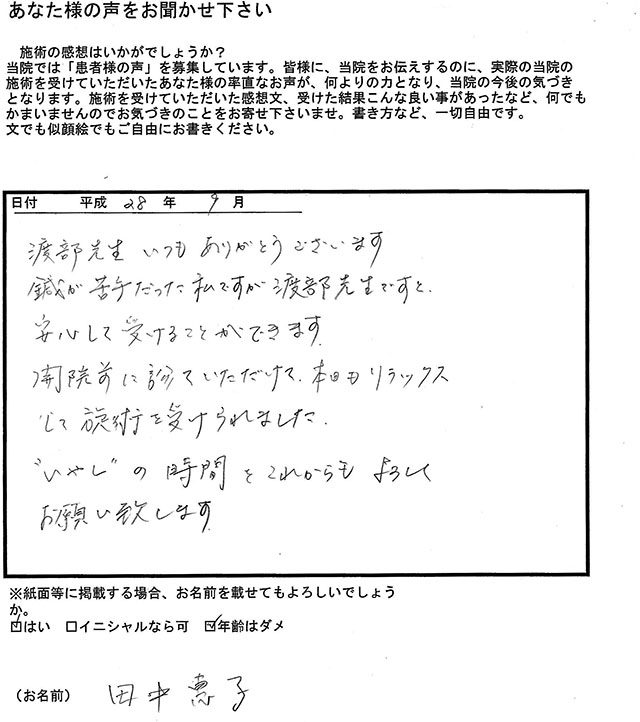 あなた様の声をお聞かせ下さい
施術の感想はいかがでしょうか？
当院では「患者様の声」を募集しています。皆様に、当院をお伝えするのに、実際の当院の
施術を受けていただいたあなた様の率直なお声が、何よりの力となり、当院の今後の気づき
となります。施術を受けていただいた感想文、受けた結果こんな良い事があったなど、何でも
かまいませんのでお気づきのことをお寄せ下さいませ。書き方など、一切自由です。
文でも似顔絵でもご自由にお書きください。
日付 平成 28 年 9 月
渡部先生 いつも ありがとうございます
鍼が苦手だった私ですが渡部先生ですと、
安心して受けることができます。
開院前に診ていただけて、本日もリラックス
して施術を受けられました。
"いやし"の時間をこれからもよろしく
お願い致します
※紙面等に掲載する場合、お名前を載せてもよろしいでしょう
か。
☑はい □イニシャルなら可 ☑年齢はダメ
（お名前） 田中恵子